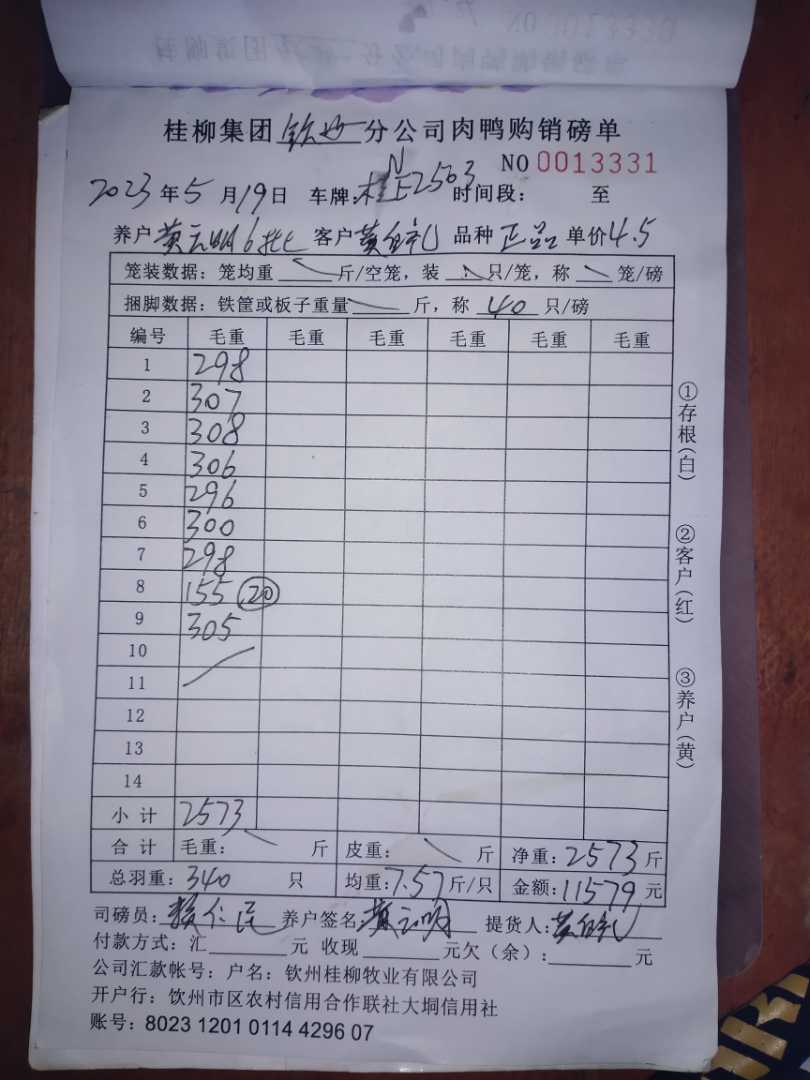 NO 0013330
桂柳集团钦州分公司肉鸭购销磅单
NO 0013331
2023年5月19日 车牌:桂N E2503 时间段: 至
养户 黄云明6批 客户 黄 礼 品种 正品 单价 4.5
笼装数据: 笼均重 斤/空笼, 装 只/笼, 称 笼/磅
捆脚数据: 铁筐或板子重量 斤, 称 40 只/磅
编号 毛重 毛重 毛重 毛重 毛重 毛重
1 298
2 307
3 308
4 306
5 296
6 300
7 298
8 155 20
9 305
10
11
12
13
14
小计 2573
合计 毛重: 斤 皮重: 斤 净重: 2573 斤
总羽重: 340 只 均重: 7.57 斤/只 金额: 11579 元
司磅员: 仁 养户签名 黄云明 提货人: 黄 礼
付款方式: 汇 元 收现 元欠(余): 元
公司汇款帐号: 户名: 钦州桂柳牧业有限公司
开户行: 饮州市区农村信用合作联社大垌信用社
账号: 8023 1201 0114 4296 07
①存根(白)
②客户(红)
③养户(黄)